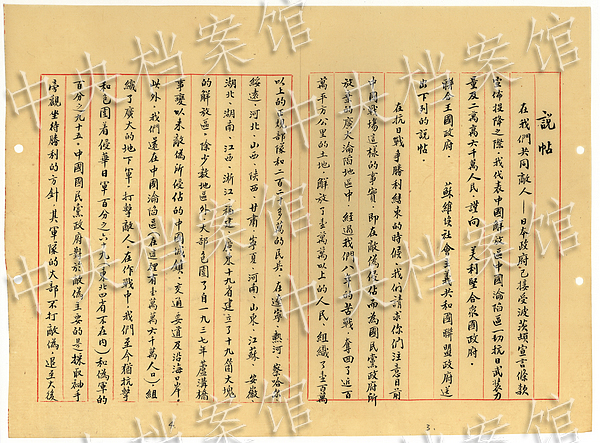 說帖
在我們共同敵人——日本政府已接受波茨頓宣言條款
宣佈投降之際,我代表中國解放區中國淪陷區一切抗日武裝力
量及二萬萬六千萬人民,謹向 美利堅合衆國政府.
聯合王國政府. 蘇維埃社會主義共和國聯盟政府送
出下列的說帖.
在抗日戰爭勝利結束的時候,我們請求你們注意目前
中國戰場這樣的事實,即在敵偽侵佔而為國民黨政府所
放棄的廣大淪陷地區中,經過我們八年的苦戰,奪回了近百
萬平方公里的土地,解放了壹萬萬以上的人民,組織了壹百萬
3.
以上的正規部隊和二百二十多萬的民兵,在遼寧、熱河、察哈爾、
綏遠、河北、山西、陝西、甘肅、寧夏、河南、山東、江蘇、安徽、
湖北、湖南、江西、浙江、福建、廣東十九省建立了十九個大塊
的解放區,除少數地區外,大部包圍了自一九三七年蘆溝橋
事變以來敵偽所侵佔的中國城鎮、交通要道及沿海口岸.
此外,我們還在中國淪陷區(在這裡有壹萬萬六千萬人口)組
織了廣大的地下軍,打擊敵人,在作戰中,我們至今猶抗擊
和包圍着侵華日軍百分之六十九(東北四省不在內)和偽軍的
百分之九十五.中國國民黨政府對於敵偽主要的是採取袖手
旁觀坐待勝利的方針,其軍隊的大部不打敵偽,退至大後
4.
中央档案馆
中央档案馆
中央档案馆